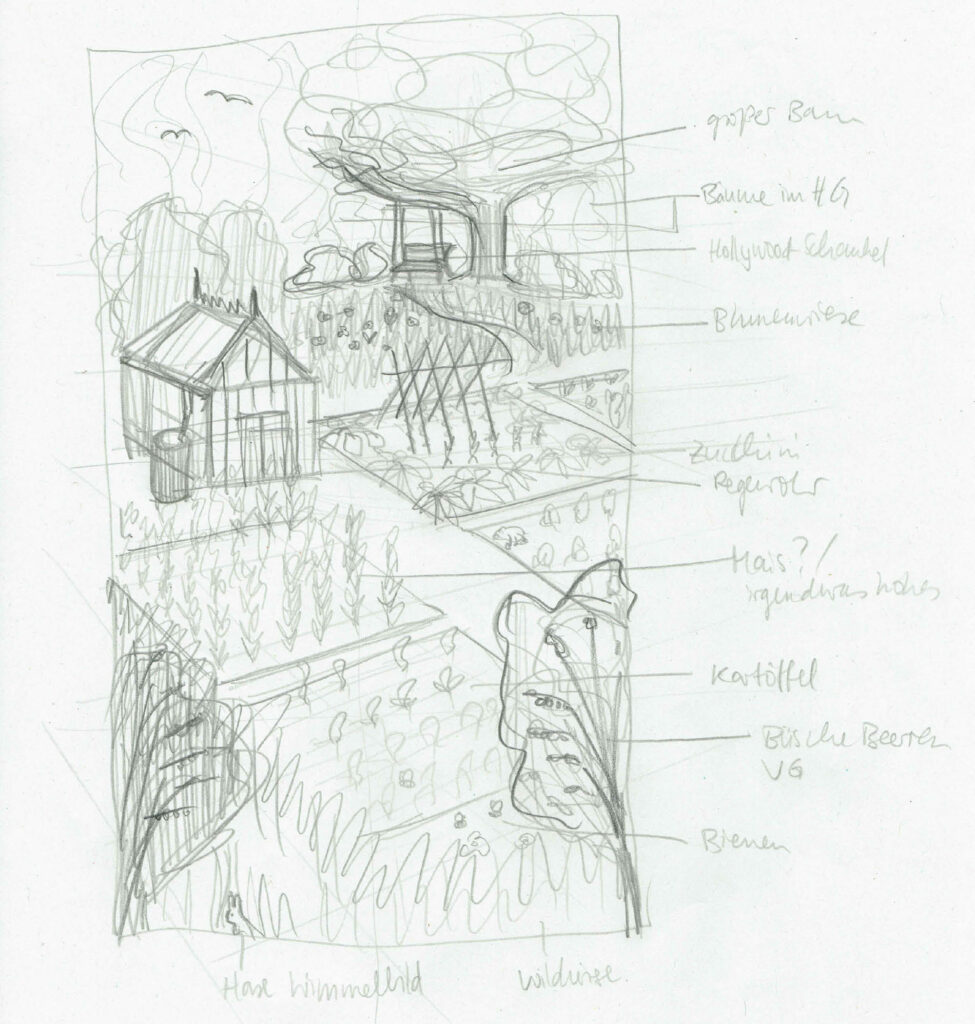 großer Baum
Bäume im HG
Hollywood Schaukel
Blumenwiese
Zucchini
Regenrohr
Mais? /
irgendwas hohes
Kartoffel
Büsche Beeren
VG
Bienen
Hase Wimmelbild
Wildwiese